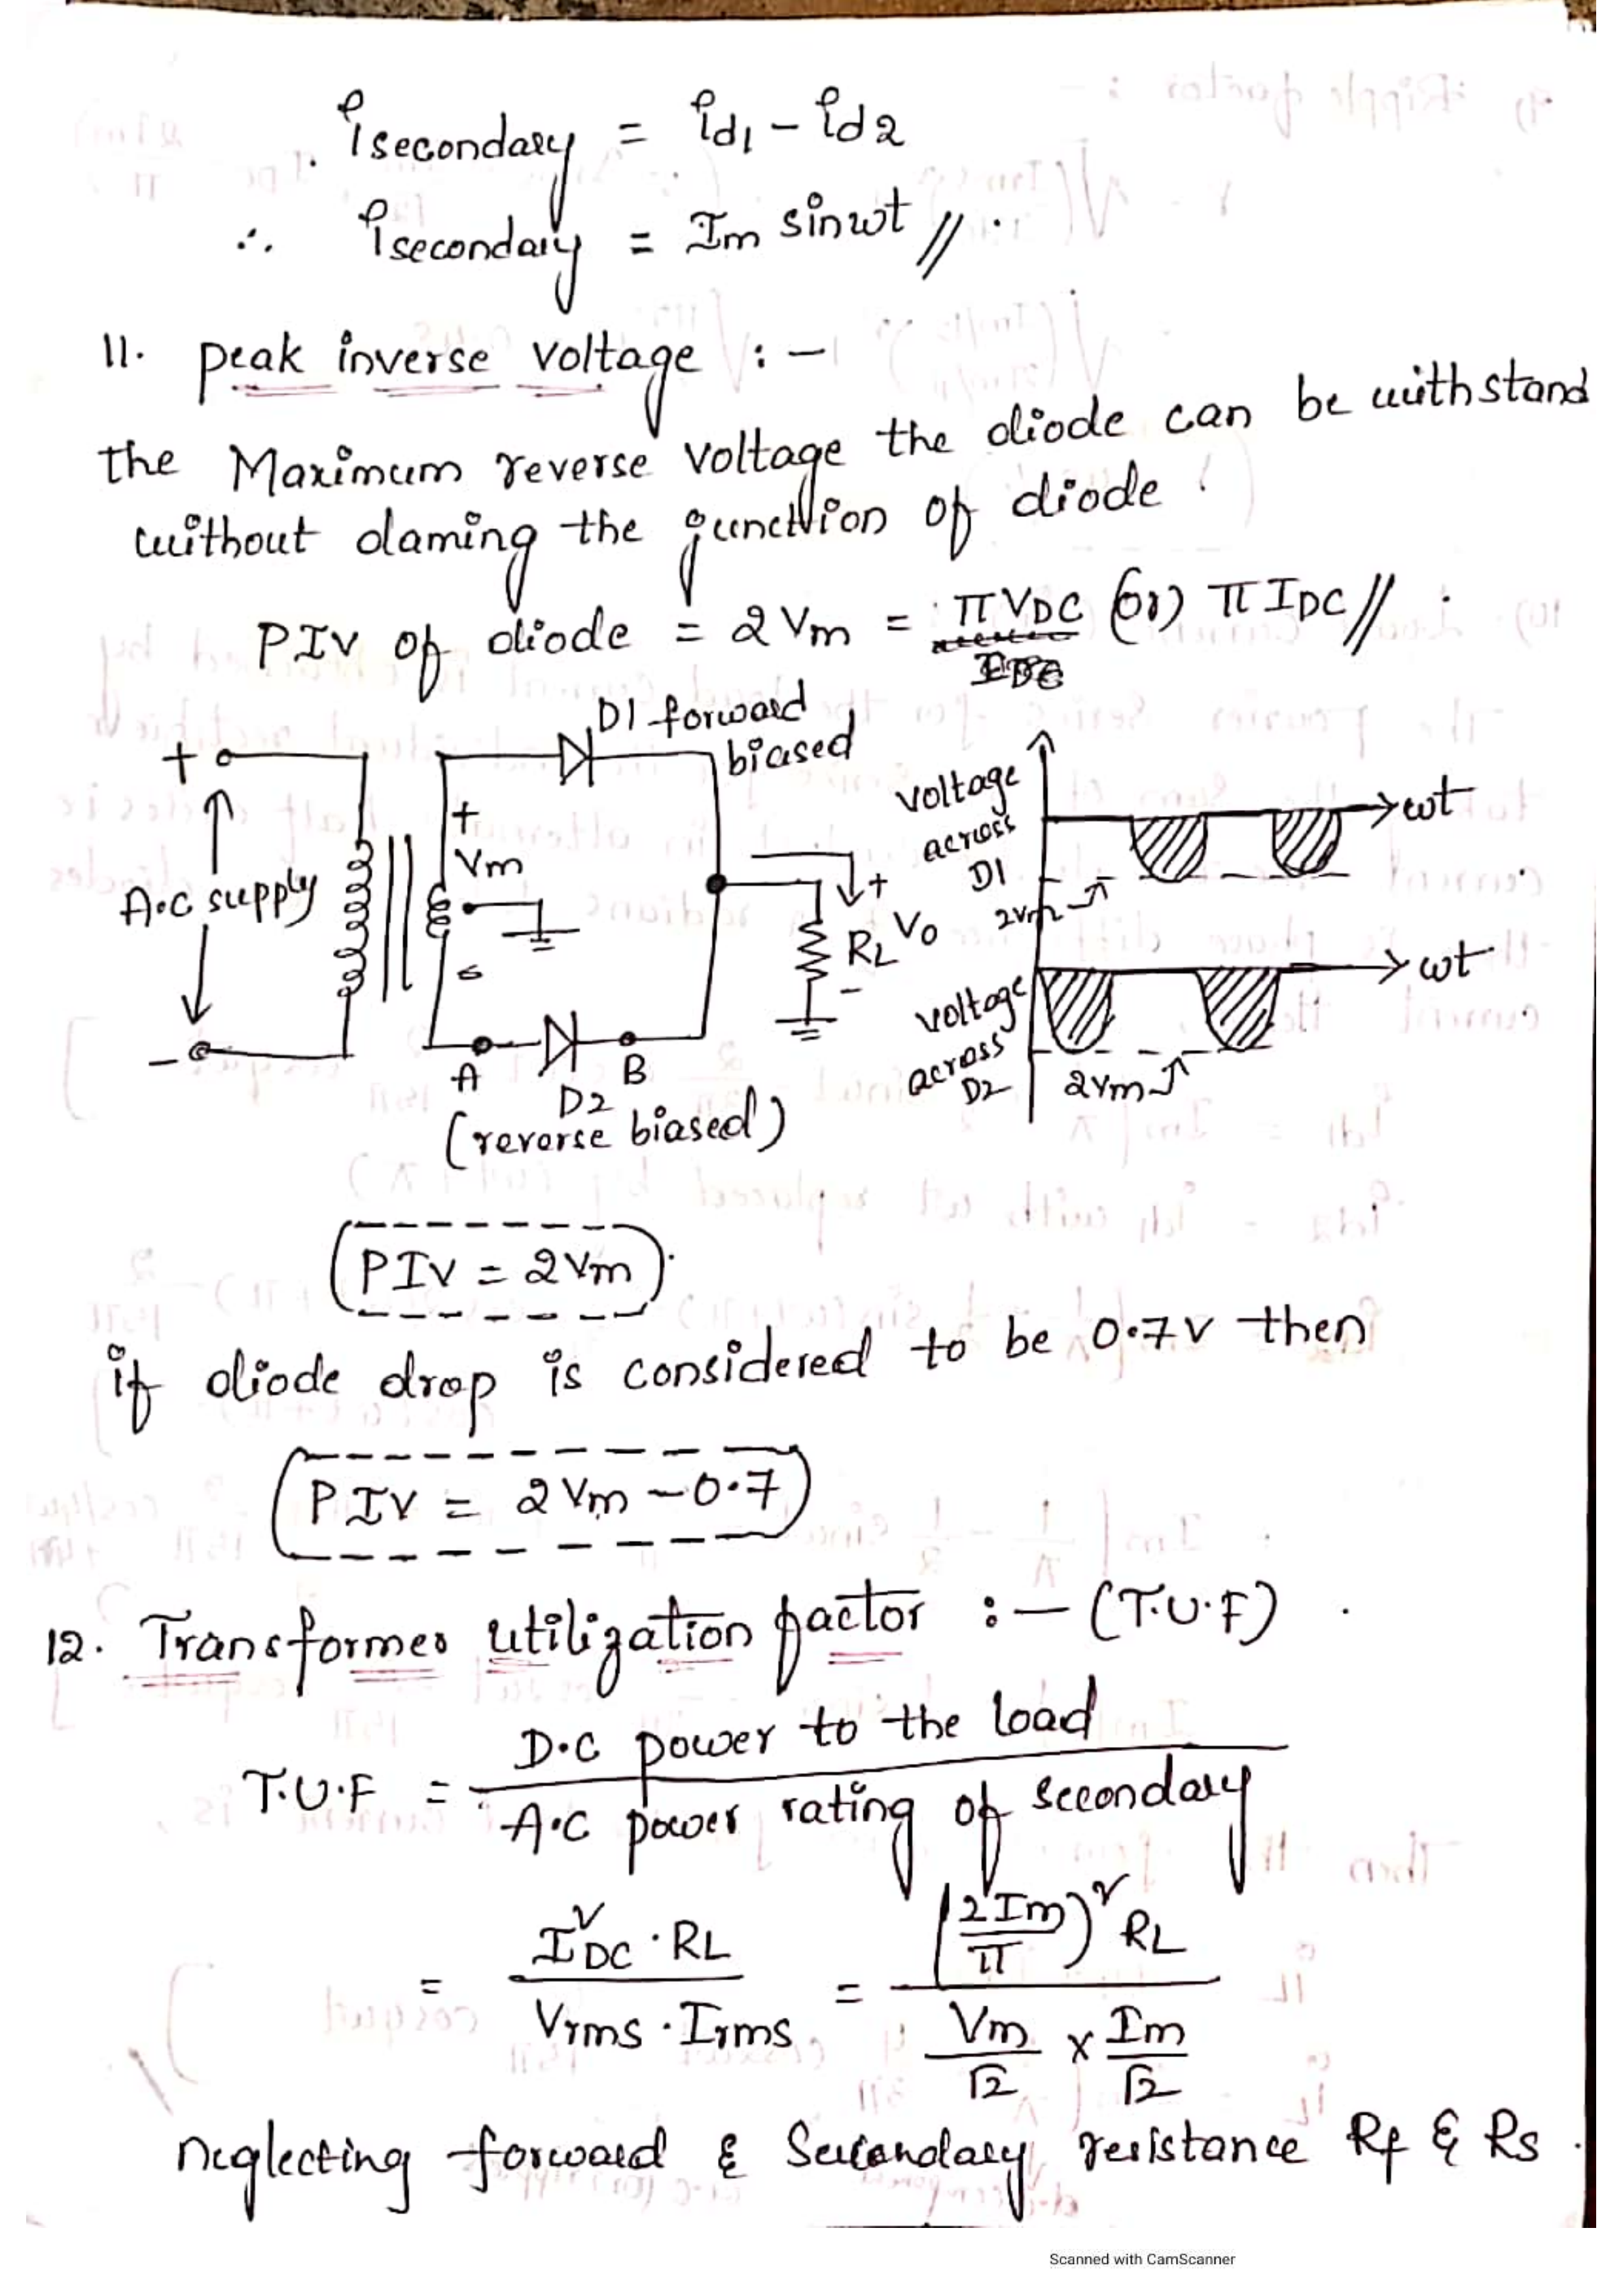 . isecondary = id1 - id2
∴ isecondary = Im sinωt //.
11. peak inverse voltage :-
the Maximum reverse voltage the diode can be withstand
without daming the junction of diode
PIV of diode = 2Vm = πVDC (or) πIDC // .
D1 forward
biased
+
A.C supply
-
+
Vm
A
B
D2
(reverse biased)
+
RL Vo
-
voltage
across
D1
2Vm
ωt
voltage
across
D2
2Vm
ωt
PIV = 2Vm
if diode drop is considered to be 0.7V then
PIV = 2Vm - 0.7
12. Transformer utilization factor :- (T.U.F) .
T.U.F = D.C power to the load / A.C power rating of secondary
= I²DC . RL / Vrms . Irms = (2Im/π)² RL / Vm/√2 x Im/√2
neglecting forward & Secondary resistance Rf & Rs .
Scanned with CamScanner